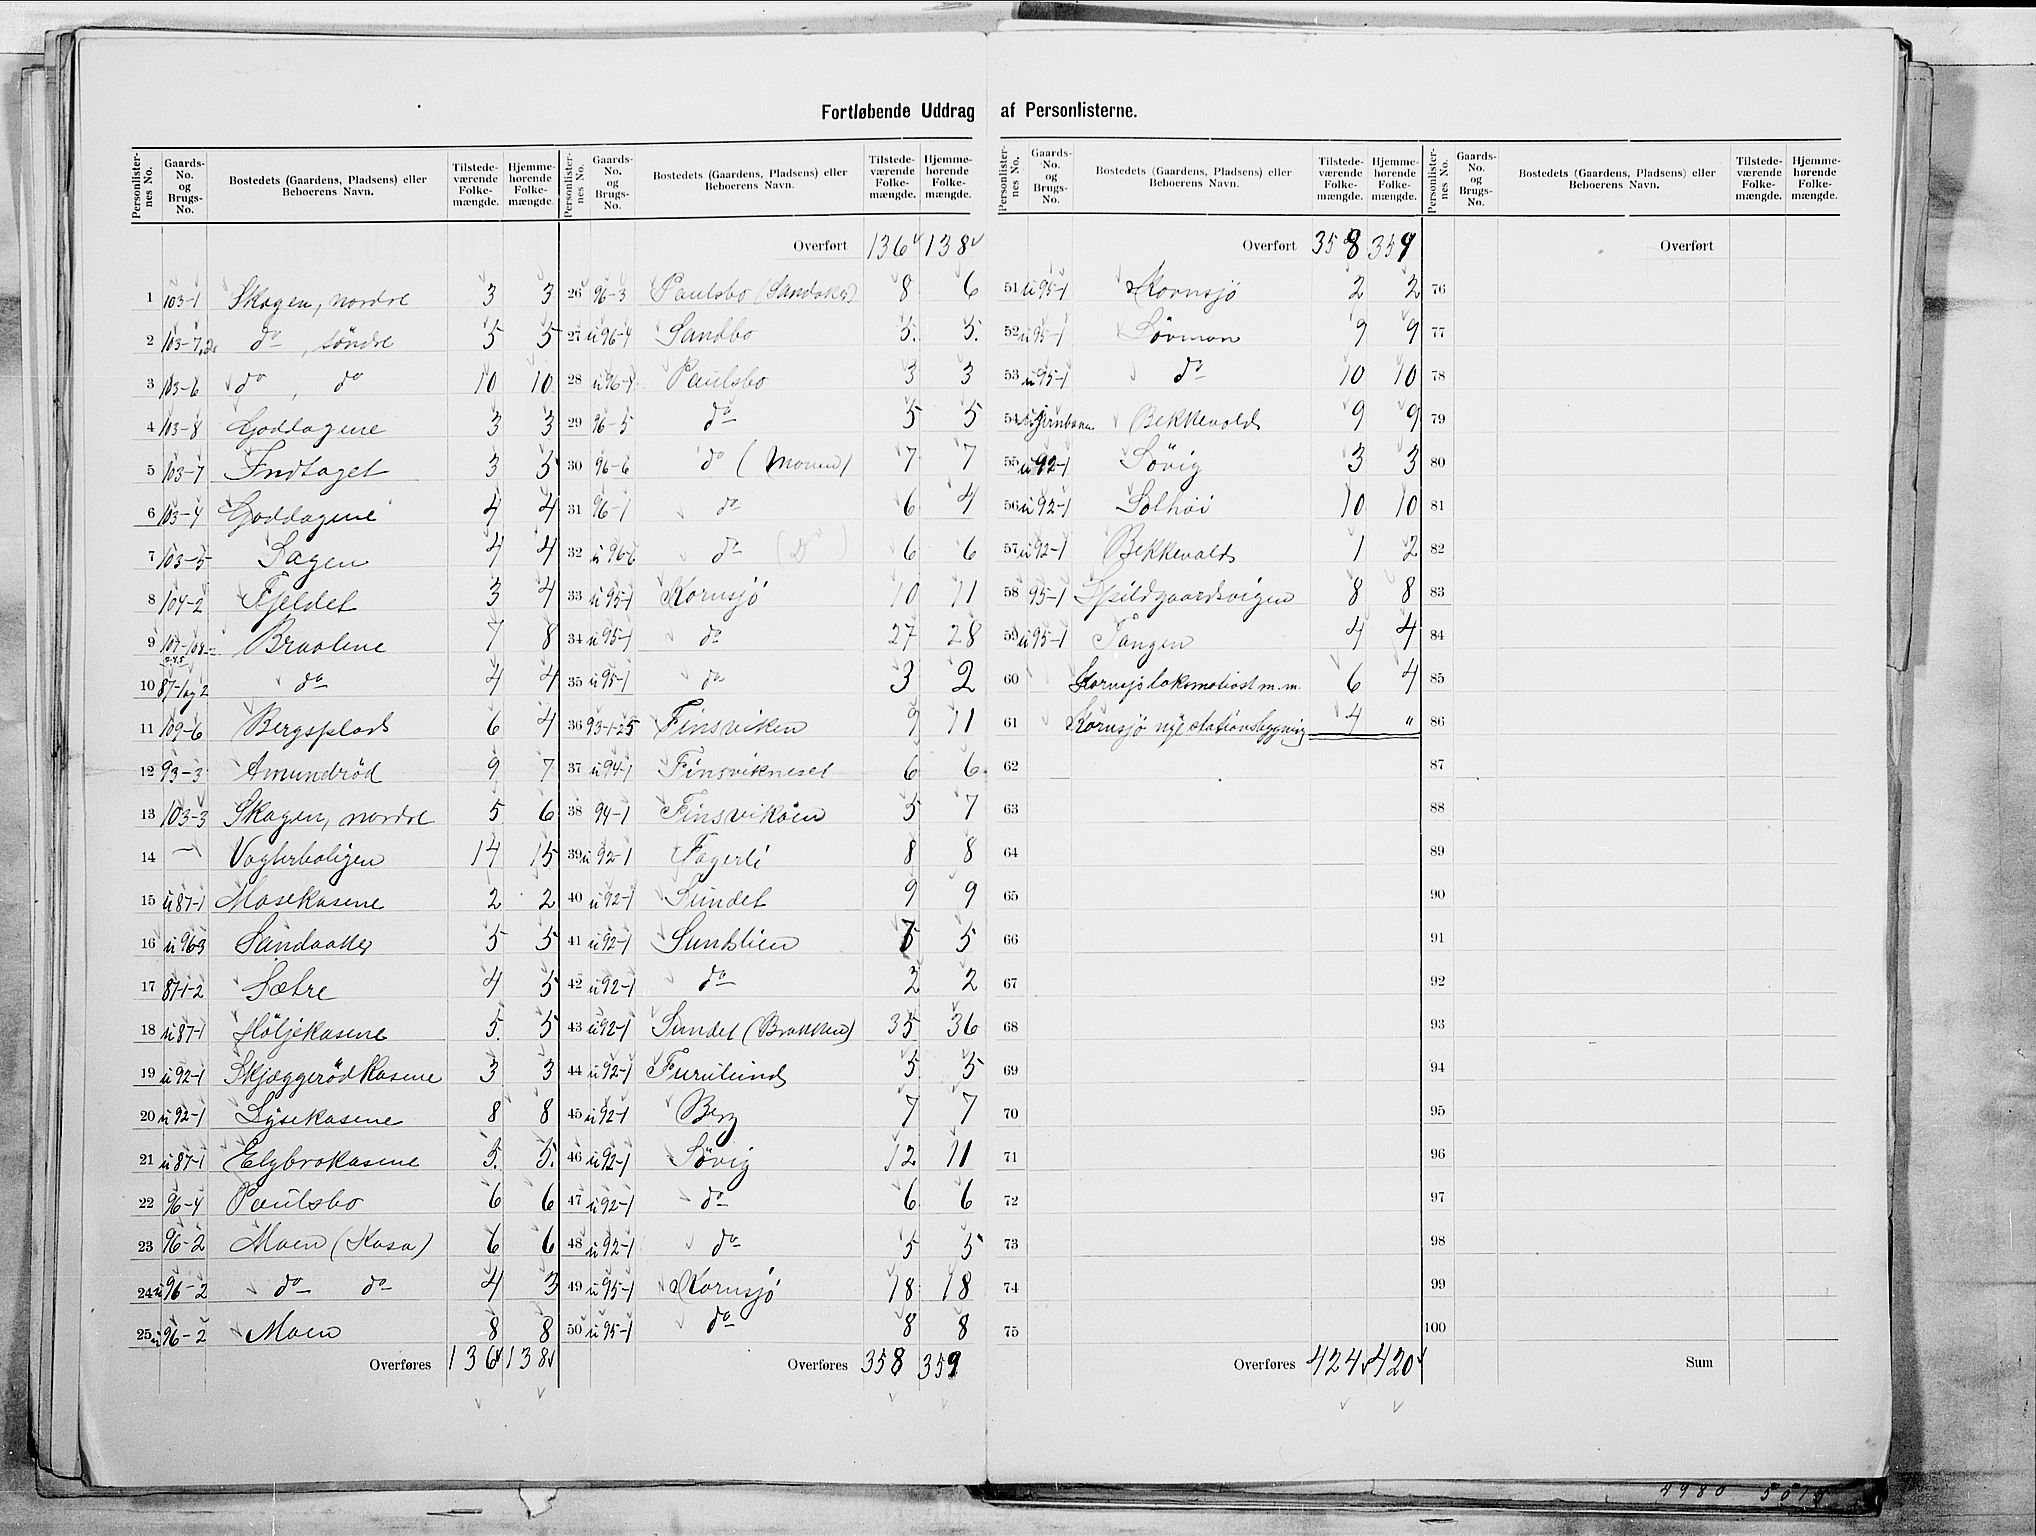 Fortløbende Uddrag af Personlisterne.
Personlister-nes No. | Gaards-No. og Brugs-No. | Bostedets (Gaardens, Pladsens) eller Beboerens Navn. | Tilstede-værende Folke-mængde. | Hjemme-hørende Folke-mængde.
1 103-1 Skogen, nordre 3 3
2 103-7,2 do , söndre 5 5
3 103-6 do , do 10 10
4 103-8 Goddagene 3 3
5 103-7 Indtaget 3 5
6 103-4 Goddagene 4 4
7 103-5 Sagen 4 4
8 104-2 Fjeldet 3 4
9 107-108- 2.4.5 Braatene 7 8
10 87-1 og 2 do 4 4
11 109-6 Bergsplads 6 4
12 93-3 Amundröd 9 7
13 103-3 Skogen, nordre 5 6
14 — Vogterboligen 14 15
15 u 87-1 Mosekasene 2 2
16 u 96-3 Sandaaker 5 5
17 87-1-2 Sætre 4 5
18 u 87-1 Höljekasene 5. 5
19 u 92-1 Skjæggerödkasene 3 3
20 u 92-1 Lysekasene 8 8
21 u 87-1 Elgbrokasene 5. 5.
22 96-4 Paulsbo 6 6
23 96-2 Moen (Kasa) 6 6
24 u 96-2 do do 4 3
25 u 96-2 Moen 8 8
Overføres 136 138
Personlister-nes No. | Gaards-No. og Brugs-No. | Bostedets (Gaardens, Pladsens) eller Beboerens Navn. | Tilstede-værende Folke-mængde. | Hjemme-hørende Folke-mængde.
Overført 136 138
26 96-3 Paulsbo (Sandaker) 8 6
27 u 96-4 Sandbo 5. 5.
28 u 96-4 Paulsbo 3 3
29 96-5 do 5 5
30 96-6 do (Monen) 7 7
31 96-1 do 6 4
32 u 96-6 do (Do) 6 6
33 u 95-1 Kornsjö 10 11
34 u 95-1 do 27 28
35 u 95-1 do 3 2
36 93-1-25 Finsviken 9 11
37 u 94-1 Finsvikneset 6 6
38 94-1 Finsviköen 5 7
39 u 92-1 Fagerli 8 8
40 u 92-1 Sundet 9 9
41 u 92-1 Sundslien 5
42 u 92-1 do 2 2
43 u 92-1 Sundet (Brakken) 35 36
44 u 92-1 Furulund 5 5
45 u 92-1 Berg 7 7
46 u 92-1 Sövig 12 11
47 u 92-1 do 6 6
48 u 92-1 do 5 5
49 u 95-1 Kornsjö 18 18
50 u 95-1 do 8 8
Overføres 358 359
Personlister-nes No. | Gaards-No. og Brugs-No. | Bostedets (Gaardens, Pladsens) eller Beboerens Navn. | Tilstede-værende Folke-mængde. | Hjemme-hørende Folke-mængde.
Overført 358 359
51 u 95-1 Kornsjö 2 2
52 u 95-1 Sörmon 9 9
53 u 95-1 do 10 10
54 u jernbanen Bekkevold 9 9
55 u 92-1 Sövig 3 3
56 u 92-1 Solhöi 10 10
57 u 92-1 Bekkevold 1 2
58 95-1 Spildgaardsvigen 8 8
59 u 95-1 Tangen 4 4
60 Kornsjö lokomotivst m.m. 6 4
61 Kornsjö nye stationsbygning 4 "
62
63
64
65
66
67
68
69
70
71
72
73
74
75
Overføres 424 420
Personlister-nes No. | Gaards-No. og Brugs-No. | Bostedets (Gaardens, Pladsens) eller Beboerens Navn. | Tilstede-værende Folke-mængde. | Hjemme-hørende Folke-mængde.
Overført
76
77
78
79
80
81
82
83
84
85
86
87
88
89
90
91
92
93
94
95
96
97
98
99
100
Sum
4980